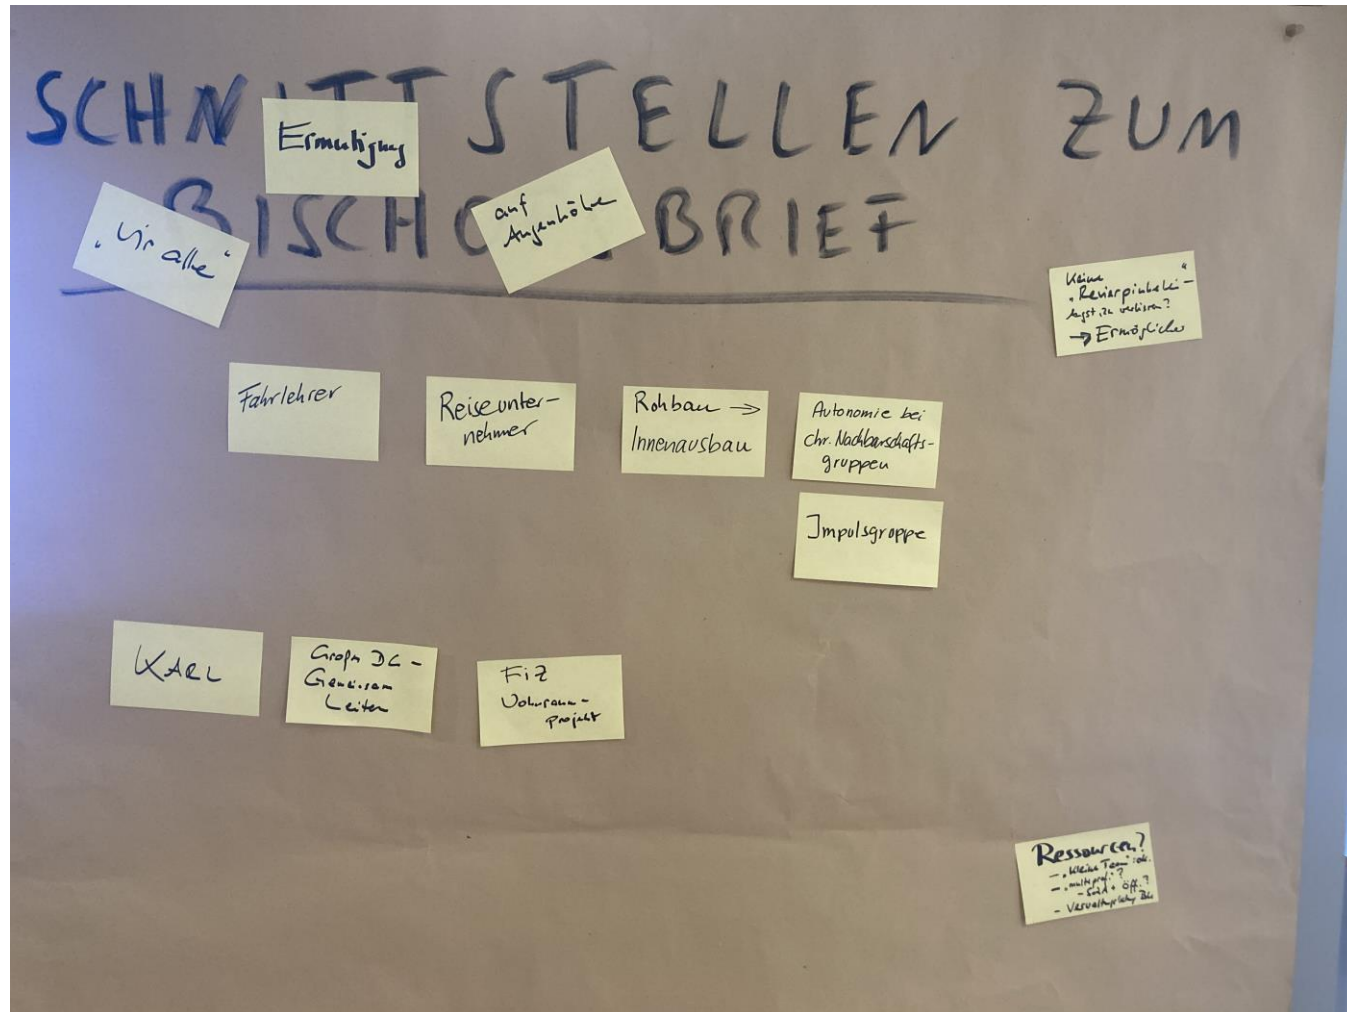 SCHNITTSTELLEN ZUM
BISCHOFSBRIEF
Ermutigung
auf
Augenhöhe
„Wir alle“
Keine
„Revierpinkelei“ –
Angst zu verlieren?
→ Ermöglicher
Fahrlehrer
Reiseunter-
nehmer
Rohbau →
Innenausbau
Autonomie bei
chr. Nachbarschafts-
gruppen
Impulsgruppe
KARL
Große DG –
Gemeinsam
Leiten
FiZ
Wohnraum-
projekt
Ressourcen?
- „Kleine Team“
- „multiprof.“?
- + Öff.?
- Verwaltungsltg